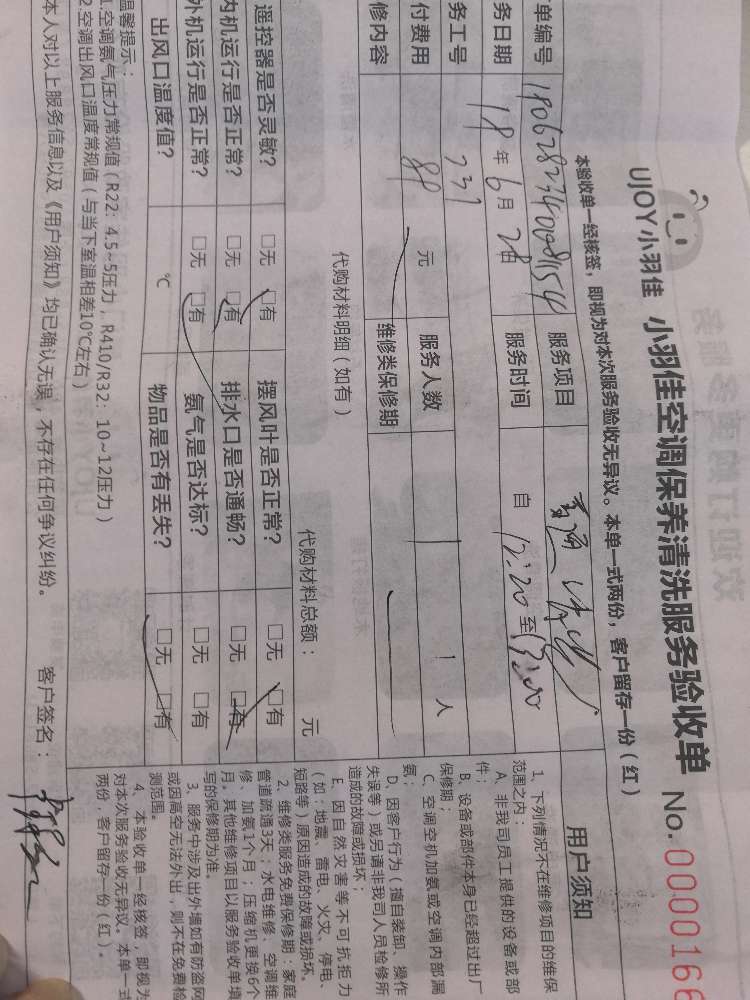 UJOY小羽佳 小羽佳空调保养清洗服务验收单 No.0000166
本验收单一经核签，即视为对本次服务验收无异议。本单一式两份，客户留存一份（红）
单编号 服务项目 清洗
务日期 18年6月28日 服务时间 自12:20至13:00
务工号 737
付费用 89元 服务人数 1人
修内容 维修类保修期
代购材料明细（如有） 代购材料总额： 元
遥控器是否灵敏？ □无 □有 摆风叶是否正常？ □无 □有
内机运行是否正常？ □无 □有 排水口是否通畅？ □无 □有
外机运行是否正常？ □无 □有 氨气是否达标？ □无 □有
出风口温度值？ ℃ 物品是否有丢失？ □无 □有
温馨提示：
1.空调氨气压力常规值（R22：4.5~5压力，R410/R32：10~12压力）
2.空调出风口温度常规值（与当下室温相差10℃左右）
本人对以上服务信息以及《用户须知》均已确认无误，不存在任何争议纠纷。 客户签名：
用户须知
1、下列情况不在维修项目的维保
范围之内：
A、非我司员工提供的设备或部
件；
B、设备或部件本身已经超过出厂
保修期；
C、空调空机加氨或空调内部漏
氨；
D、因客户行为（擅自装卸、操作
失误等）或另请非我司人员检修所
造成的故障或损坏；
E、因自然灾害等不可抗拒力
（如：地震、雷电、火灾、停电、
短路等）原因造成的故障或损坏。
2、维修类服务免费保修期：家庭
管道疏通3天；水电维修、空调维
修、加氨1个月；压缩机更换6个
月。其他维修项目以服务验收单填
写的保修期为准。
3、服务中涉及出外墙如有防盗网
或因高空无法外出，则不在免费检
测范围。
4、本验收单一经核签，即视为
对本次服务验收无异议。本单一式
两份，客户留存一份（红）。